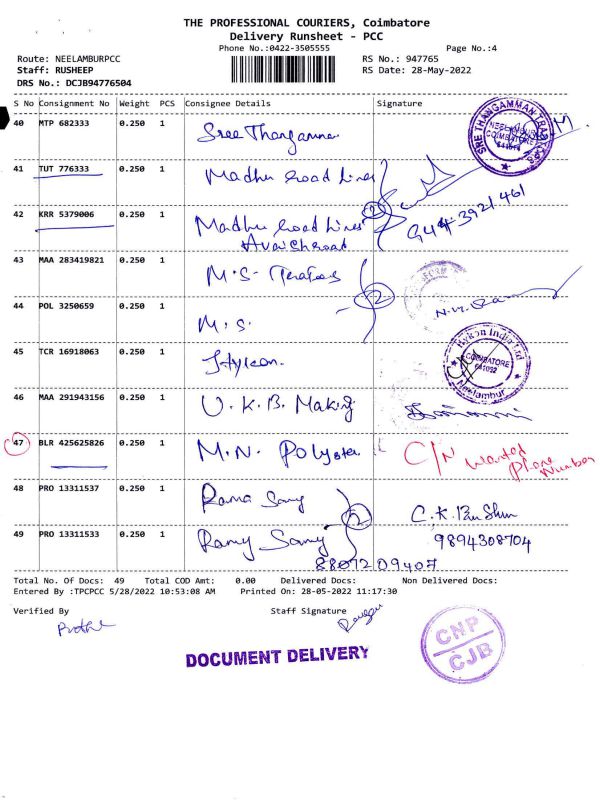 THE PROFESSIONAL COURIERS, Coimbatore
Delivery Runsheet - PCC
Phone No.:0422-3505555 Page No.:4
Route: NEELAMBURPCC RS No.: 947765
Staff: RUSHEEP RS Date: 28-May-2022
DRS No.: DCJB94776504
S No Consignment No Weight PCS Consignee Details Signature
40 MTP 682333 0.250 1 Sree Thangamma
SREE THANGAMMAN TRADERS
NEELAMBUR
COIMBATORE
41 TUT 776333 0.250 1 Madhu Road Lines
42 KRR 5379006 0.250 1 Madhu Road Lines 2
Road
43 MAA 283419821 0.250 1 M.S. 2
44 POL 3250659 0.250 1 M.S.
45 TCR 16918063 0.250 1 Hykon
Hykon India Ltd
COIMBATORE
Neelambur
46 MAA 291943156 0.250 1 U.K.B. Making
47 BLR 425625826 0.250 1 M.N. Polyster C/N wanted
Phone
Number
48 PRO 13311537 0.250 1 Rama Samy 2
49 PRO 13311533 0.250 1 Ramy Samy 9894308704
8807209407
Total No. Of Docs: 49 Total COD Amt: 0.00 Delivered Docs: Non Delivered Docs:
Entered By :TPCPCC 5/28/2022 10:53:08 AM Printed On: 28-05-2022 11:17:30
Verified By Staff Signature
DOCUMENT DELIVERY
CNP
CJB